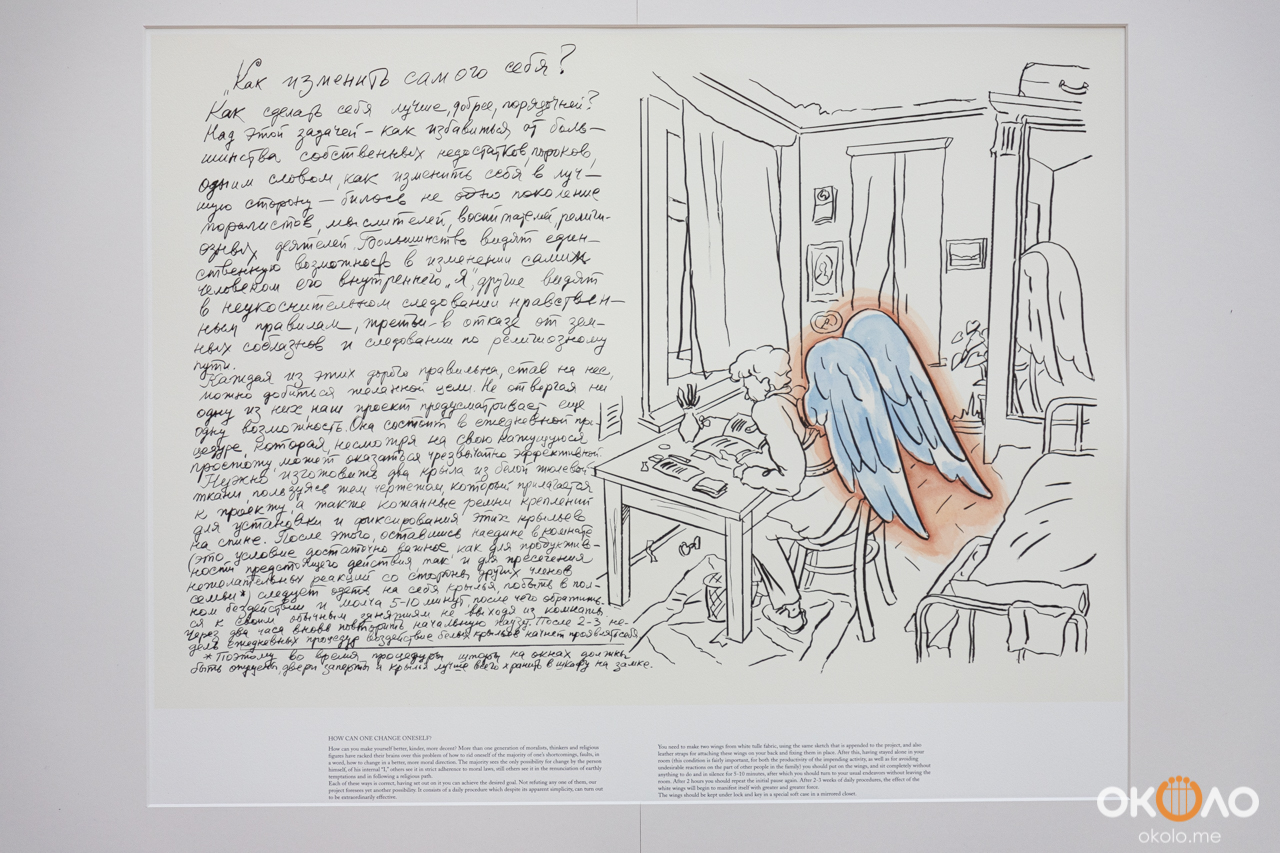 „Как изменить самого себя?
Как сделать себя лучше, добрее, порядочней?
Над этой задачей – как избавиться от боль–
шинства собственных недостатков, пороков,
одним словом, как изменить себя в луч–
шую сторону – билось не одно поколение
моралистов, мыслителей, воспитателей, религи–
озных деятелей. Большинство видят един–
ственную возможность в изменении самим
человеком его внутреннего „Я", другие видят
в неукоснительном следовании нравствен–
ным правилам, третьи – в отказе от зем–
ных соблазнов и следовании по религиозному
пути.
Каждая из этих дорог правильна, став на нее,
можно добиться желанной цели. Не отвергая ни
одну из них наш проект предусматривает еще
одну возможность. Она состоит в ежедневной про–
цедуре, которая, несмотря на свою кажущуюся
простоту, может оказаться чрезвычайно эффективной.
Нужно изготовить два крыла из белой тюлевой
ткани, пользуясь тем чертежом, который прилагается
к проекту, а также кожанные ремни креплений
для установки и фиксирования этих крыльев
на спине. После этого, оставшись наедине в комнате
(это условие достаточно важное как для продуктив–
ности предстоящего действия так и для пресечения
нежелательных реакций со стороны других членов
семьи*) следует одеть на себя крылья, побыть в пол–
ном бездействии и молча 5-10 минут после чего обратить–
ся к своим обычным занятиям не выходя из комнаты.
Через два часа вновь повторить начальную паузу. После 2-3 не–
дель ежедневных процедур воздействие белых крыльев начнет проявлять себя
* Поэтому во время процедуры шторы на окнах должны
быть опущены, двери заперты и крылья лучше всего хранить в шкафу на замке.
HOW CAN ONE CHANGE ONESELF?
How can you make yourself better, kinder, more decent? More than one generation of moralists, thinkers and religious
figures have racked their brains over this problem of how to rid oneself of the majority of one's shortcomings, faults, in
a word, how to change in a better, more moral direction. The majority sees the only possibility for change by the person
himself, of his internal "I," others see it in strict adherence to moral laws, still others see it in the renunciation of earthly
temptations and in following a religious path.
Each of these ways is correct, having set out on it you can achieve the desired goal. Not refuting any one of them, our
project foresees yet another possibility. It consists of a daily procedure which despite its apparent simplicity, can turn out
to be extraordinarily effective.
You need to make two wings from white tulle fabric, using the same sketch that is appended to the project, and also
leather straps for attaching these wings on your back and fixing them in place. After this, having stayed alone in your
room (this condition is fairly important, for both the productivity of the impending activity, as well as for avoiding
undesirable reactions on the part of other people in the family) you should put on the wings, and sit completely without
anything to do and in silence for 5-10 minutes, after which you should turn to your usual endeavors without leaving the
room. After 2 hours you should repeat the initial pause again. After 2-3 weeks of daily procedures, the effect of the
white wings will begin to manifest itself with greater and greater force.
The wings should be kept under lock and key in a special soft case in a mirrored closet.
ОКОЛО
okolo.me